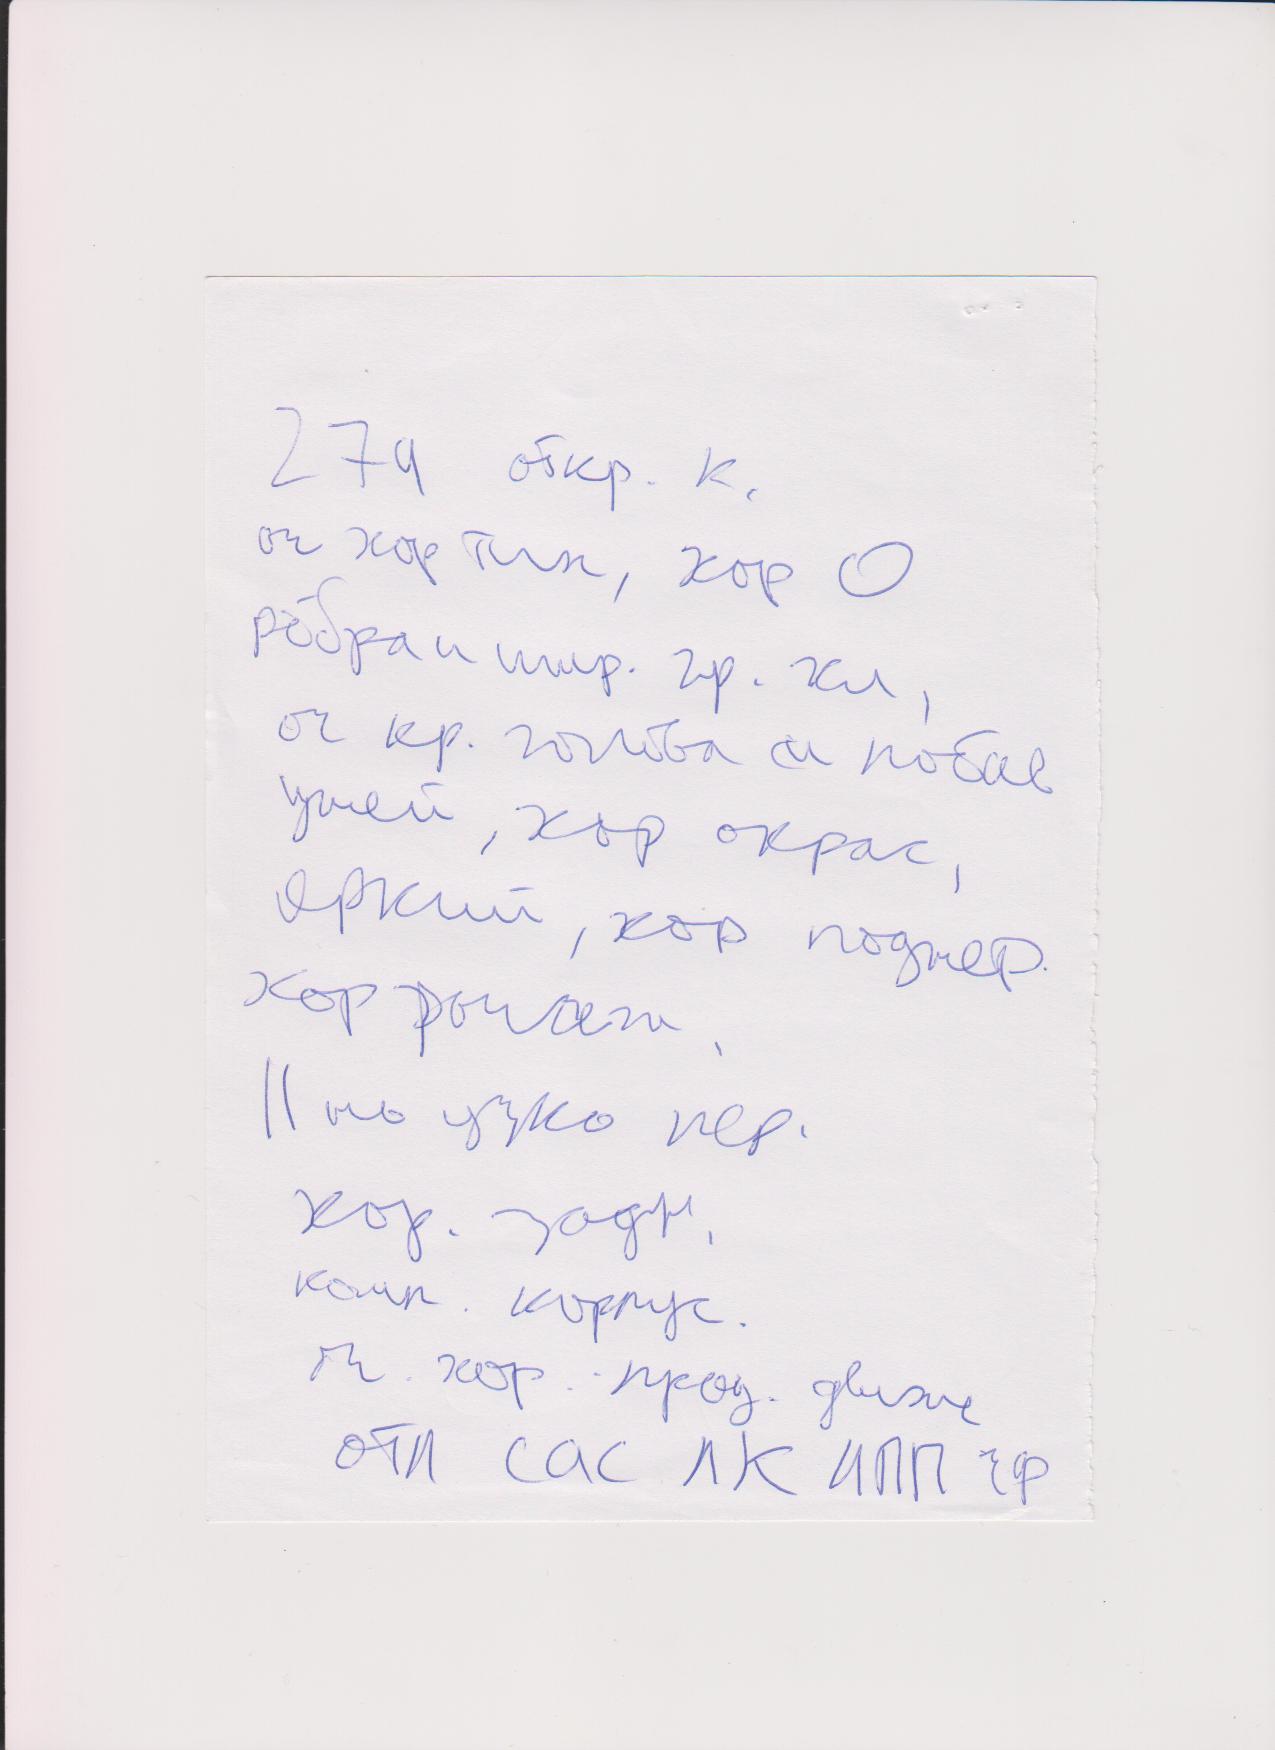 274 откр. к.
оч хор тип, хор О
рёбра и шир. гр. кл,
оч кр. голова и
ушей, хор окрас,
яркий, хор подшер.
хор
|| но узко пер.
хор. задн.
комп. корпус.
оч. хор. прод. движ
отл САС ЛК ЧФ